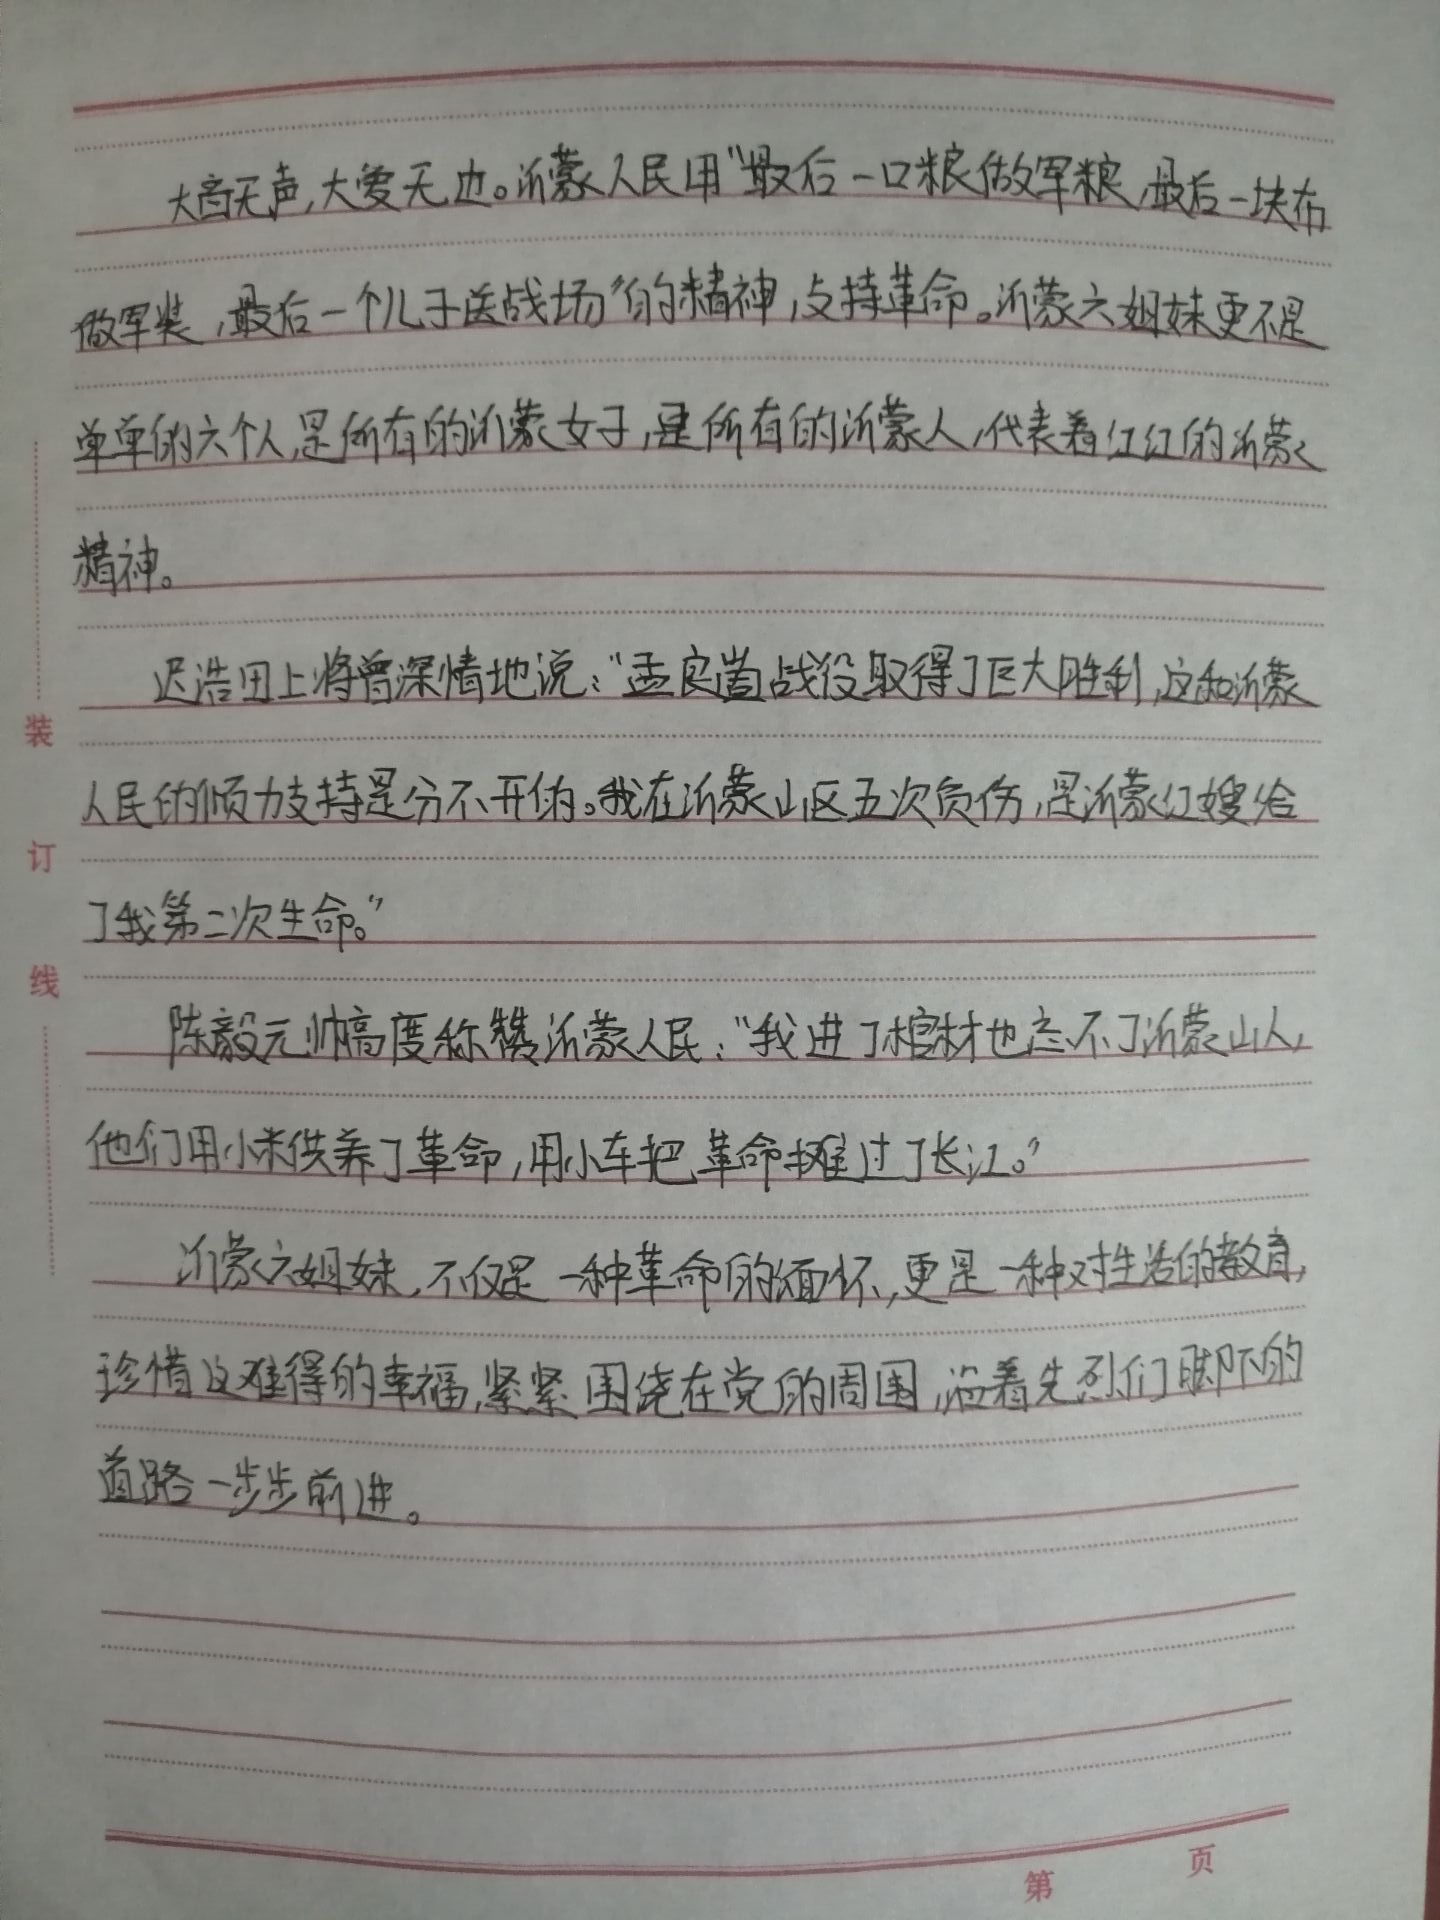 大音无声,大爱无边。沂蒙人民用“最后一口粮做军粮,最后一块布
做军装,最后一个儿子送战场”的精神,支持革命。沂蒙六姐妹更不是
单单的六个人,是所有的沂蒙女子,是所有的沂蒙人,代表着红红的沂蒙
精神。
迟浩田上将曾深情地说:“孟良崮战役取得了巨大胜利,这和沂蒙
人民的倾力支持是分不开的。我在沂蒙山区五次负伤,是沂蒙红嫂给
了我第二次生命。”
陈毅元帅高度称赞沂蒙人民:“我进了棺材也忘不了沂蒙山人,
他们用小米供养了革命,用小车把革命推过了长江。”
沂蒙六姐妹,不仅是一种革命的缅怀,更是一种对生活的教育,
珍惜这难得的幸福,紧紧围绕在党的周围,沿着先烈们脚下的
道路一步步前进。
装
订
线
第 页